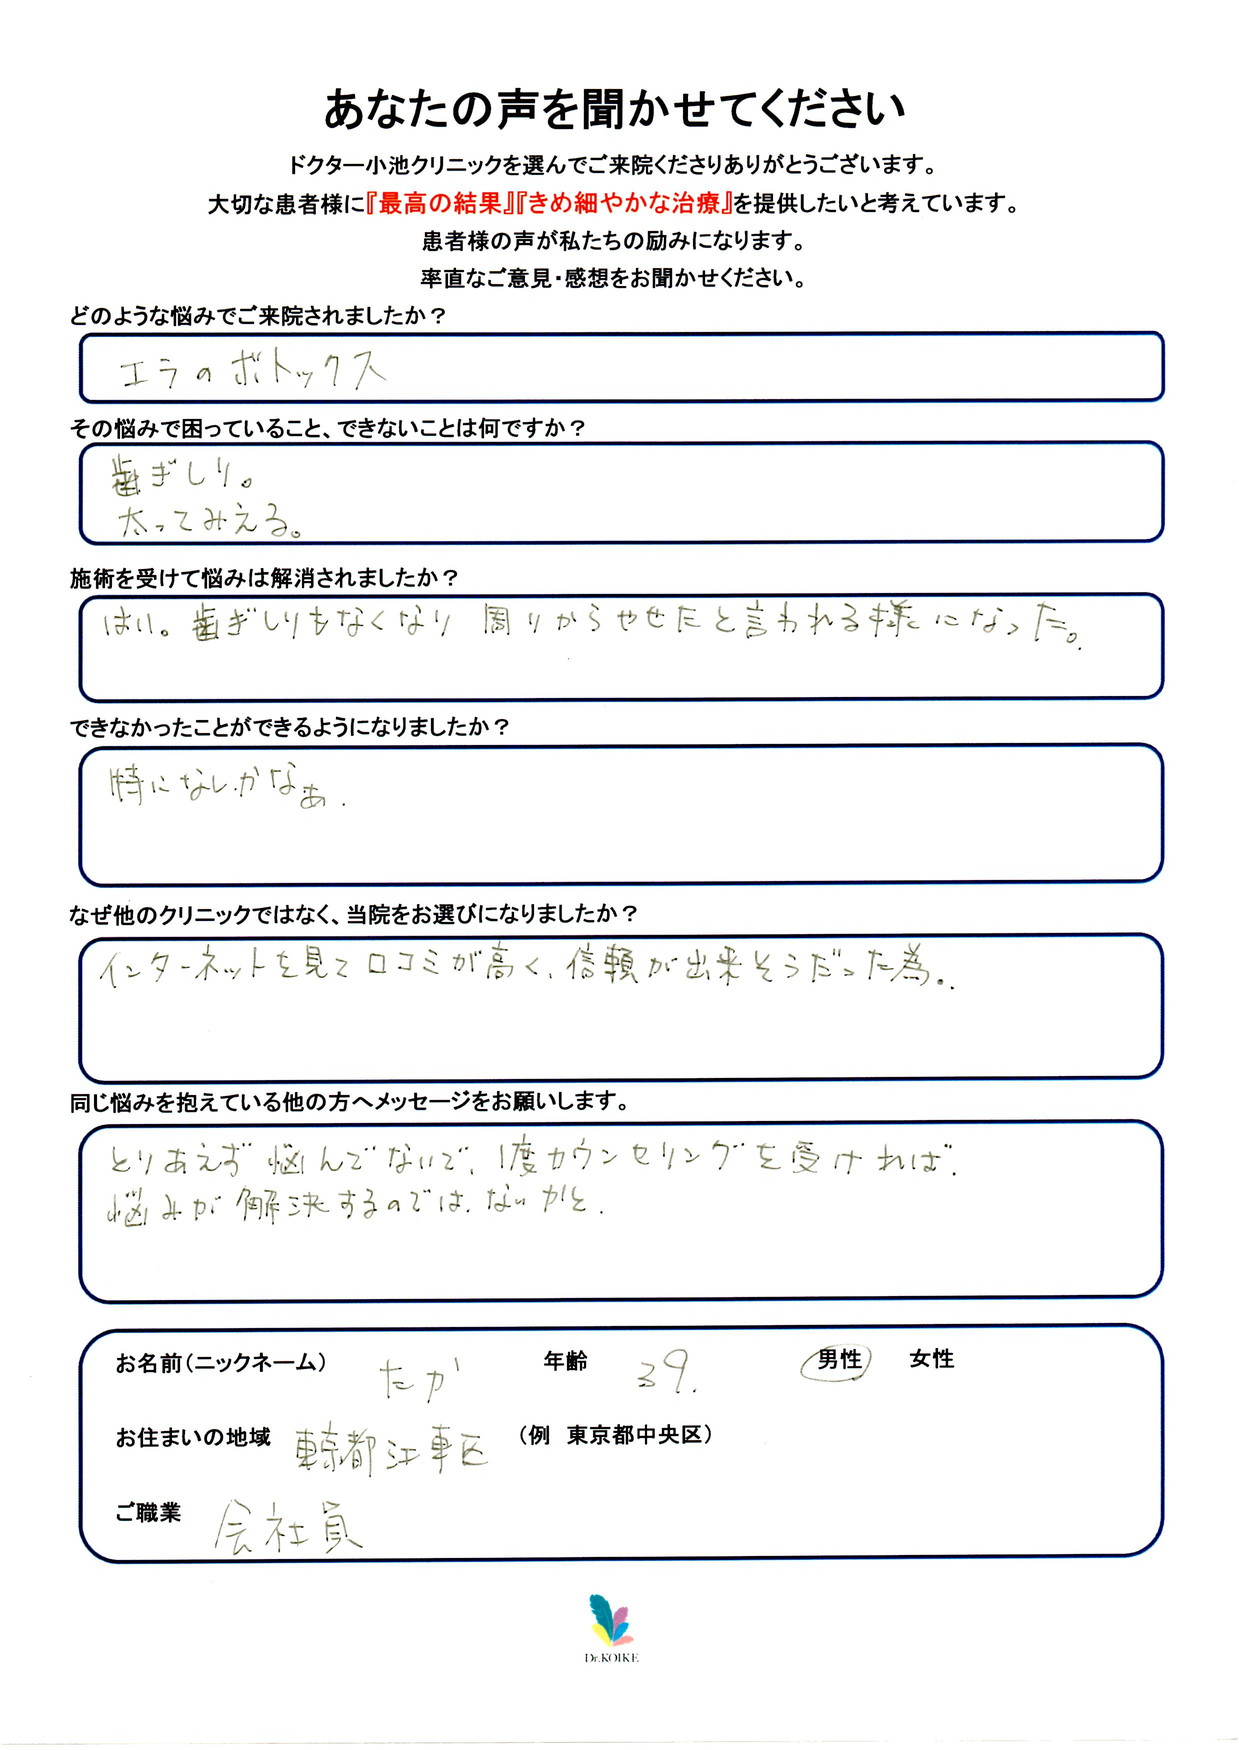 あなたの声を聞かせてください
ドクター小池クリニックを選んでご来院くださりありがとうございます。
大切な患者様に『最高の結果』『きめ細やかな治療』を提供したいと考えています。
患者様の声が私たちの励みになります。
率直なご意見・感想をお聞かせください。
どのような悩みでご来院されましたか？
エラのボトックス
その悩みで困っていること、できないことは何ですか？
歯ぎしり。
太ってみえる。
施術を受けて悩みは解消されましたか？
はい。歯ぎしりもなくなり 周りからやせたと言われる様になった。
できなかったことができるようになりましたか？
特にないかなぁ.
なぜ他のクリニックではなく、当院をお選びになりましたか？
インターネットを見て口コミが高く、信頼が出来そうだった為。
同じ悩みを抱えている他の方へメッセージをお願いします。
とりあえず悩んでないで、1度カウンセリングを受ければ.
悩みが解決するのでは.ないかと.
お名前(ニックネーム) たか 年齢 39. 男性 女性
お住まいの地域 東京都江東区 (例 東京都中央区)
ご職業 会社員
Dr.KOIKE